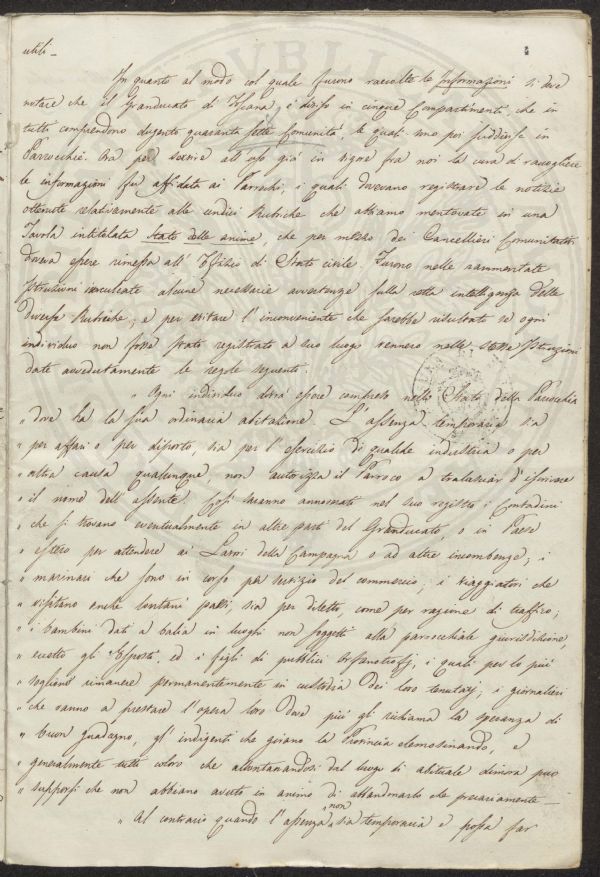 utili_
In quanto al modo col quale furono raccolte le Informazioni si deve
notare che il Granducato di Toscana è diviso in cinque Compartimenti, che in
tutti comprendono dugento quaranta sette Comunità, le quali sono poi suddivise in
Parrocchie. Ora per servire all'uso già in vigore fra noi la cura di raccogliere
le informazioni fu affidata ai Parrochi, i quali dovevano registrare le notizie
ottenute relativamente alle undici Rubriche che abbiamo mentovate in una
Tavola intitolata Stato delle anime, che per mezzo dei Cancellieri Comunitativi
doveva essere rimessa all'Ufizio di Stato civile. Furono nelle rammentate
Istruzioni inculcate alcune necessarie avvertenze sulla retta intelligenza delle
diverse Rubriche; e per evitare l'inconveniente che sarebbe risultato se ogni
individuo non fosse stato registrato a suo luogo vennero nelle stesse Istruzioni
date avvedutamente le regole seguenti.
" Ogni individuo dovrà essere compreso nello Stato della Parrocchia
" dove ha la sua ordinaria abitazione. L'assenza temporaria sia
" per affari o per diporto, sia per l'esercizio di qualche industria o per
" altra causa qualunque, non autorizza il Parroco a tralasciar d'iscrivere
" il nome dell'assente. Così saranno annoverati nel suo registro i Contadini
" che si trovano eventualmente in altre parti del Granducato, o in Paese
" estero per attendere ai Lavori della Campagna o ad altre incombenze; i
" marinari che sono in corso per servizio del commercio; i viaggiatori che
" visitano anche lontani paesi, sia per diletto, come per ragione di traffico;
" i bambini dati a balia in luoghi non soggetti alla parrocchiale giurisdizione,
" eccetto gli Esposti, ed i figli di pubblici Orfanotrofj, i quali per lo più
" sogliono rimanere permanentemente in custodia dei loro tenutarj; i giornalieri
" che vanno a prestare l'opera loro dove più gli richiama la speranza di
" buon guadagno, gl'indigenti che girano la Provincia elemosinando, e
" generalmente tutti coloro che allontanandosi dal luogo di abituale dimora può
" supporsi che non abbiano avuto in animo di abbandonarlo che precariamente_
" Al contrario quando l'assenza non sia temporaria e possa far